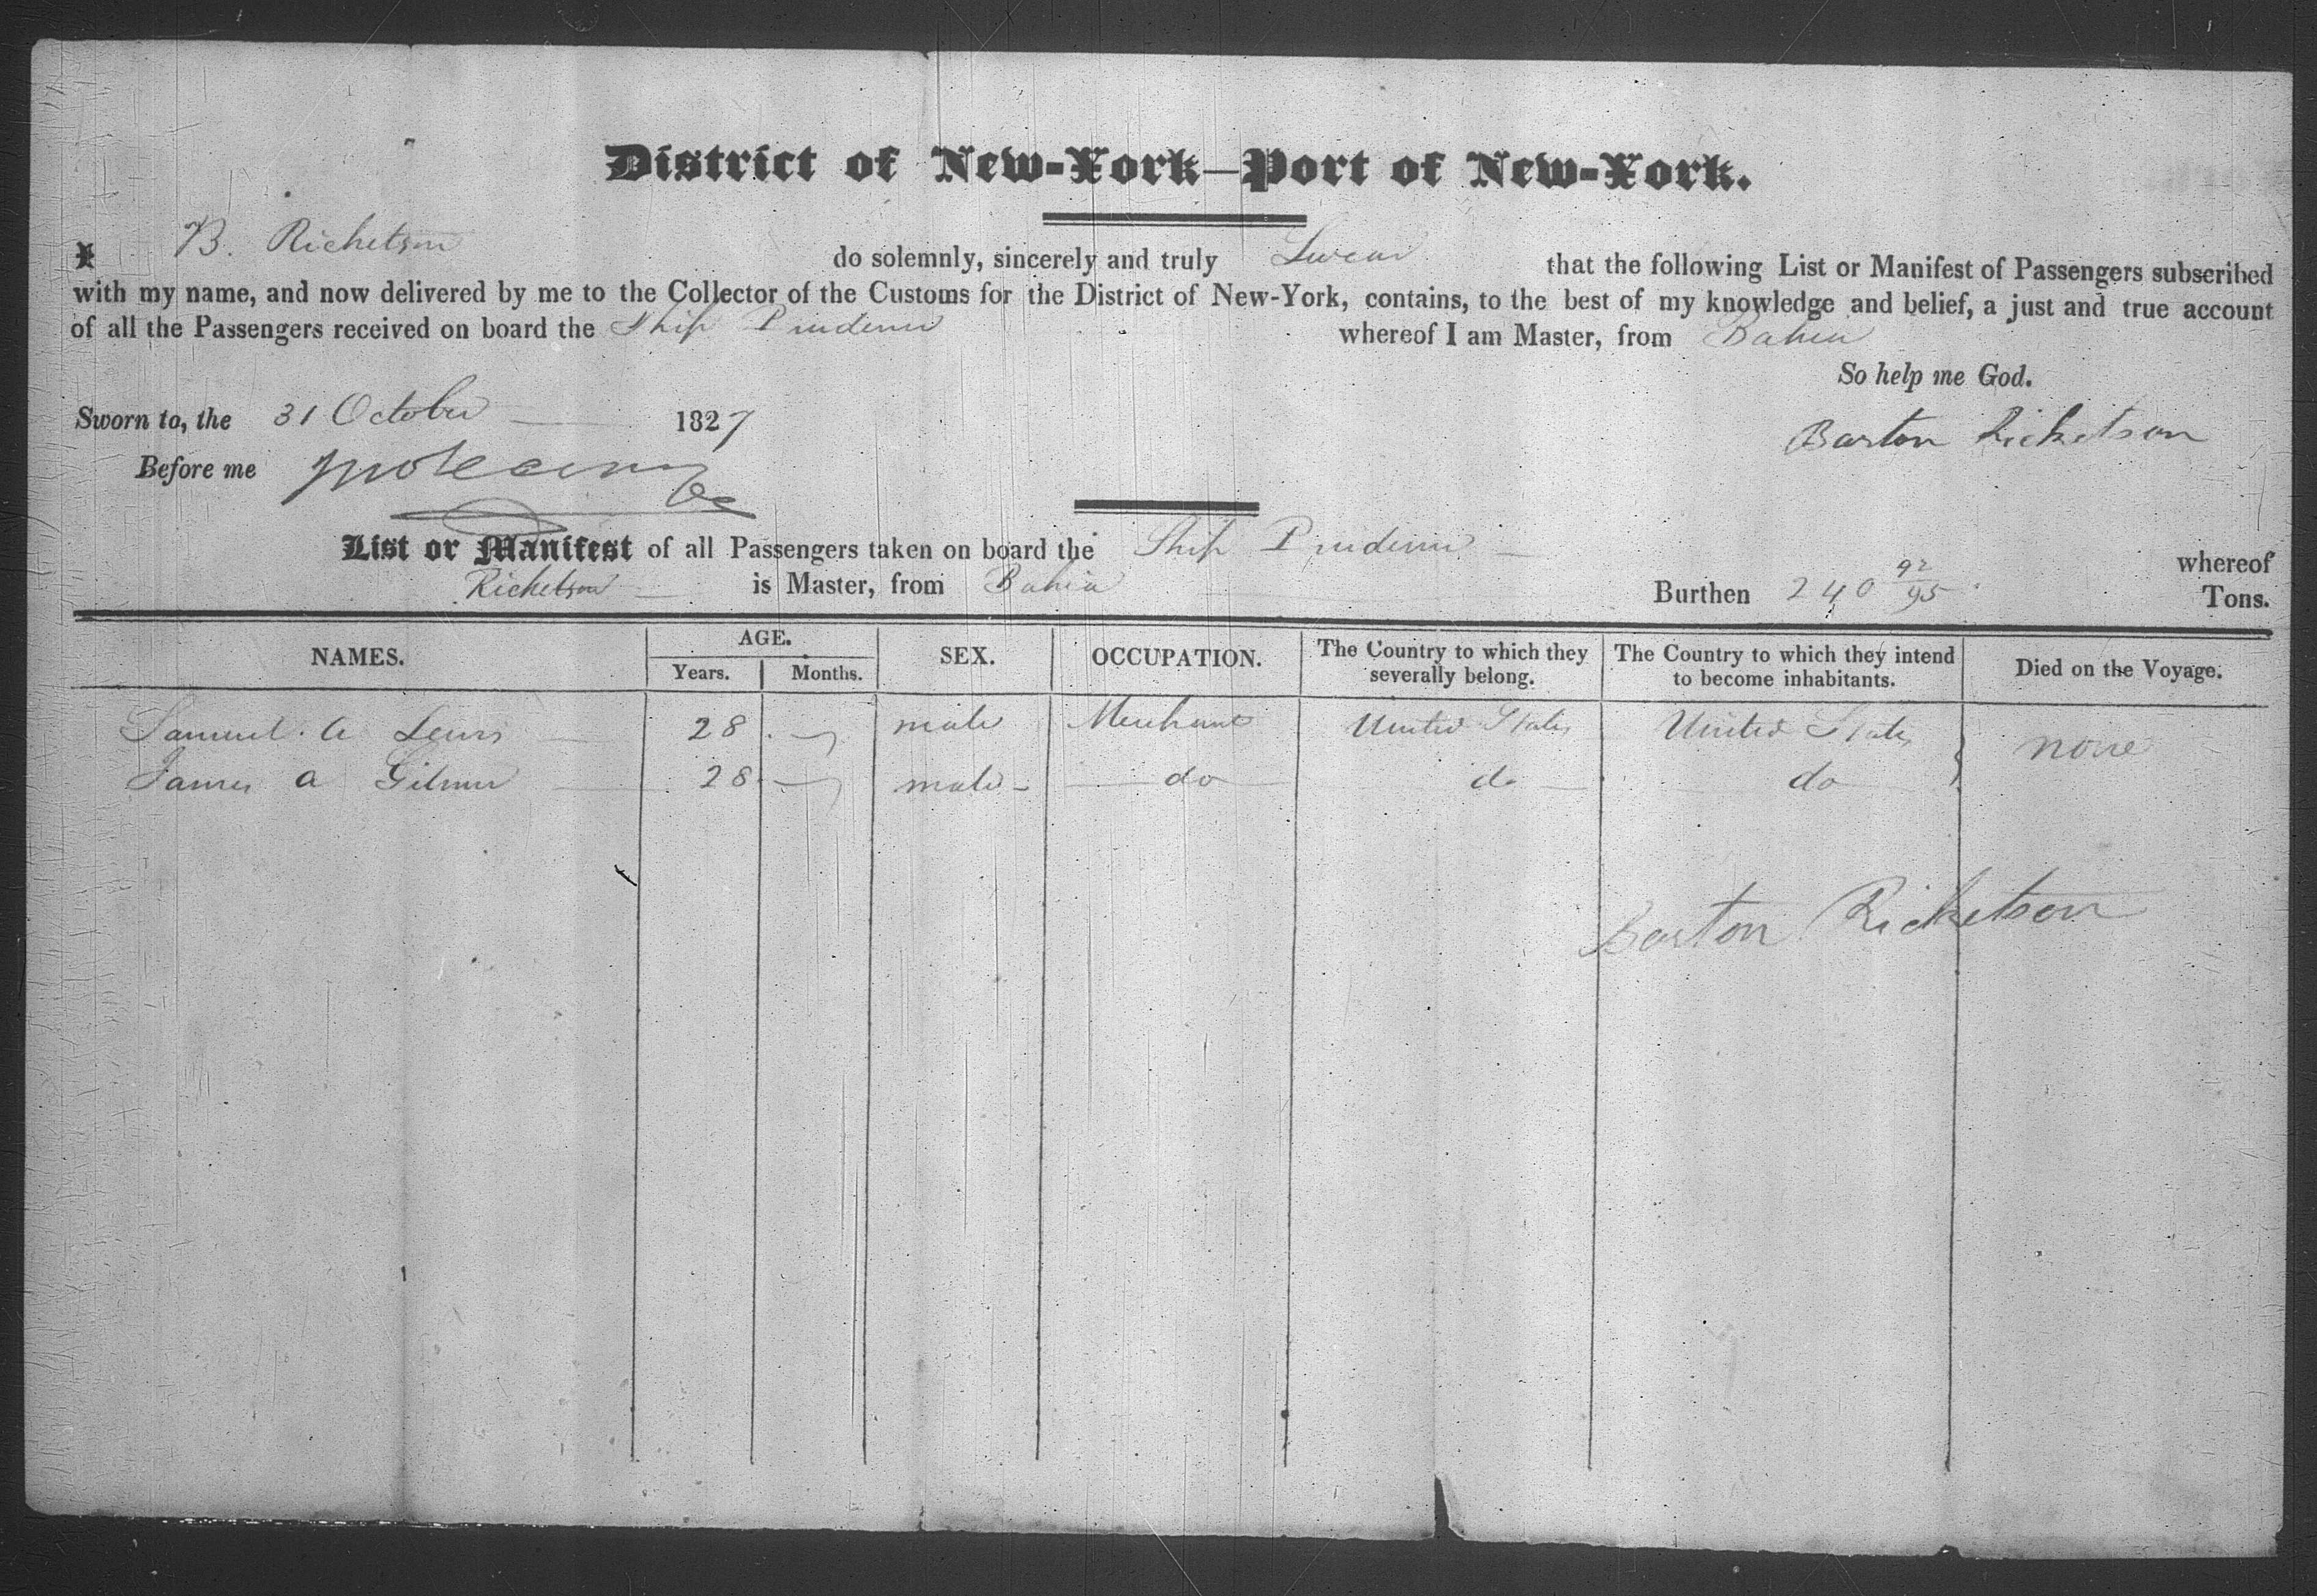 District of New-York—Port of New-York.
I B. Ricketson do solemnly, sincerely and truly Swear that the following List or Manifest of Passengers subscribed
with my name, and now delivered by me to the Collector of the Customs for the District of New-York, contains, to the best of my knowledge and belief, a just and true account
of all the Passengers received on board the Ship Prudence whereof I am Master, from Bahia
So help me God.
Sworn to, the 31 October 1827
Barton Ricketson
Before me
List or Manifest of all Passengers taken on board the Ship Prudence whereof
Ricketson is Master, from Bahia Burthen 240 92/95 Tons.
NAMES. AGE. Years. Months. SEX. OCCUPATION. The Country to which they severally belong. The Country to which they intend to become inhabitants. Died on the Voyage.
Samuel. A Lewis 28 male Merchant United States United States none
James A Gilmer 28 male do do do
Barton Ricketson